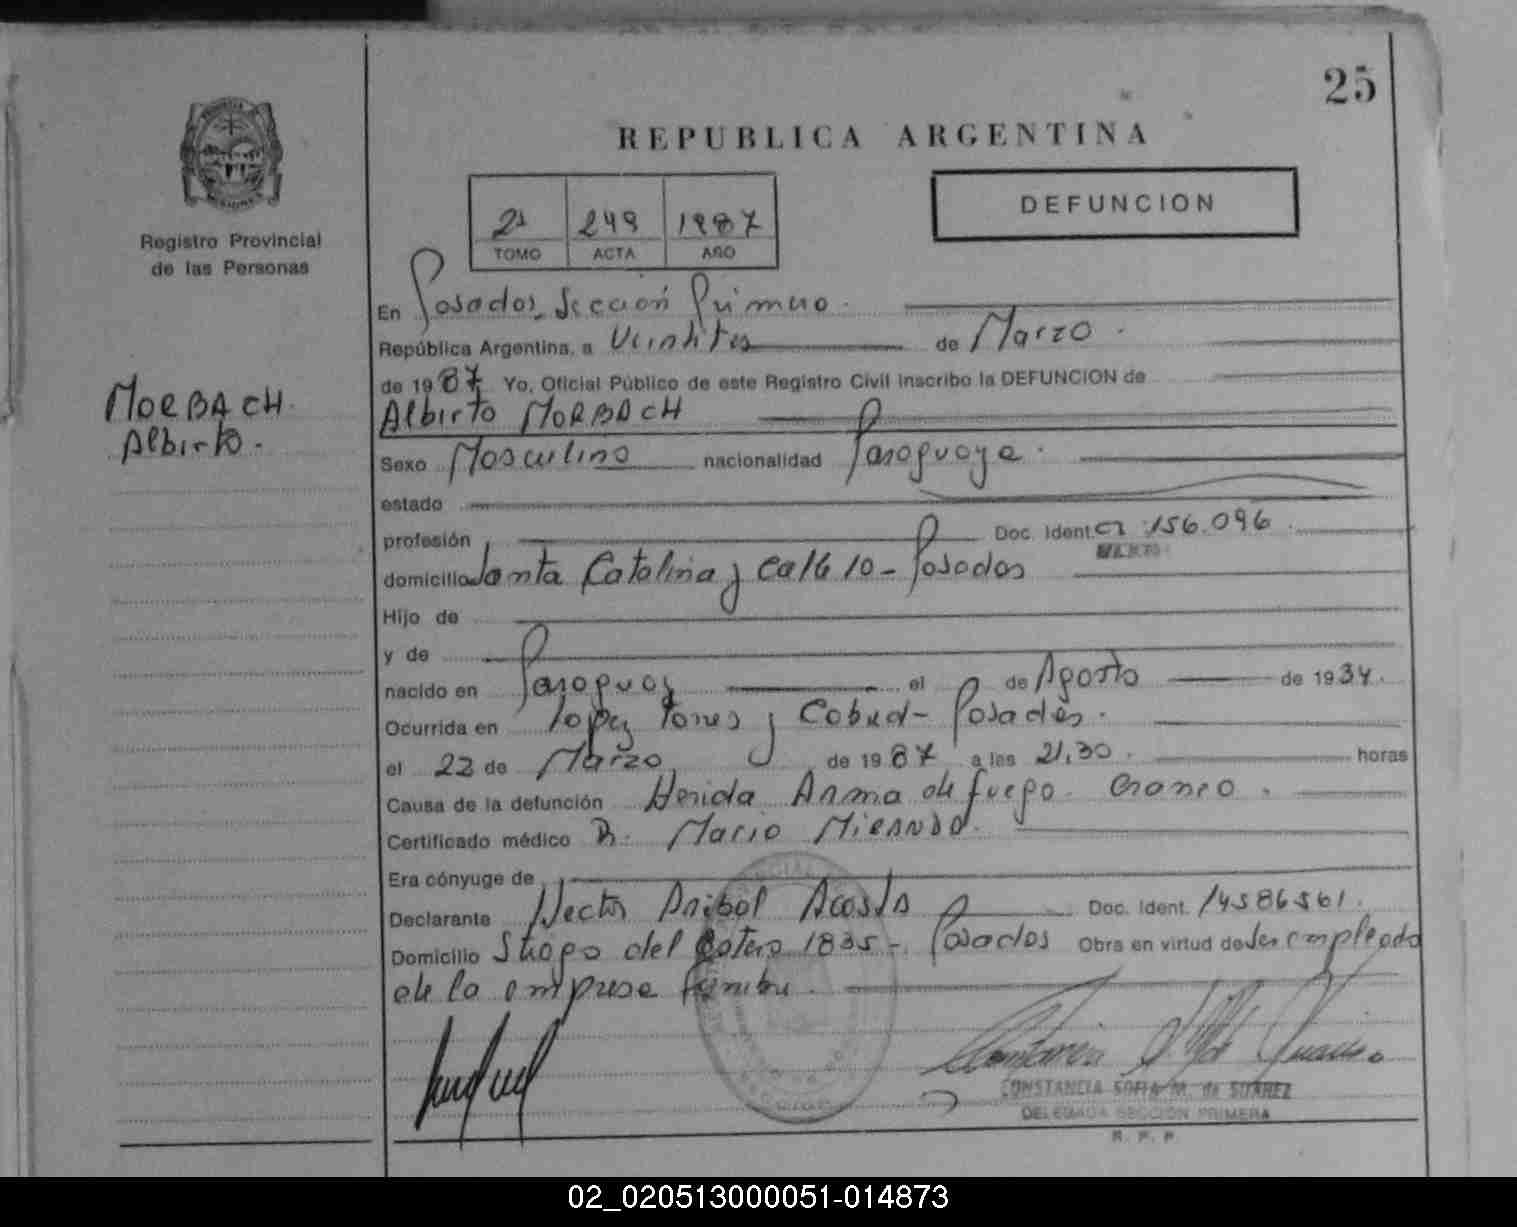 25
REPUBLICA ARGENTINA
DEFUNCION
2º 249 1987
TOMO ACTA AÑO
Registro Provincial
de las Personas
MORBACH
Alberto.
En Posadas, Sección Primera.
República Argentina, a Veintitres de Marzo.
de 1987 Yo, Oficial Público de este Registro Civil inscribo la DEFUNCION de
Alberto MORBACH
Sexo Masculino nacionalidad Paraguaya.
estado
profesión Doc. Ident. CI 156.096
domicilio Santa Catalina y Calle 10 - Posadas
Hijo de
y de
nacido en Paraguay el de Agosto de 1934.
Ocurrida en Lopez Torres y Cabred - Posadas.
el 22 de Marzo de 1987 a las 21,30. horas
Causa de la defunción Herida Arma de fuego. Craneo.
Certificado médico Dr. Mario Miranda.
Era cónyuge de
Declarante Hector Anibal Acosta Doc. Ident. 14586561.
Domicilio Stiago del Estero 1835 -. Posadas Obra en virtud de Ser empleado
de la empresa funebre.
CONSTANCIA SOFIA M. de SUAREZ
DELEGADA SECCION PRIMERA
R. P. P.
02_020513000051-014873